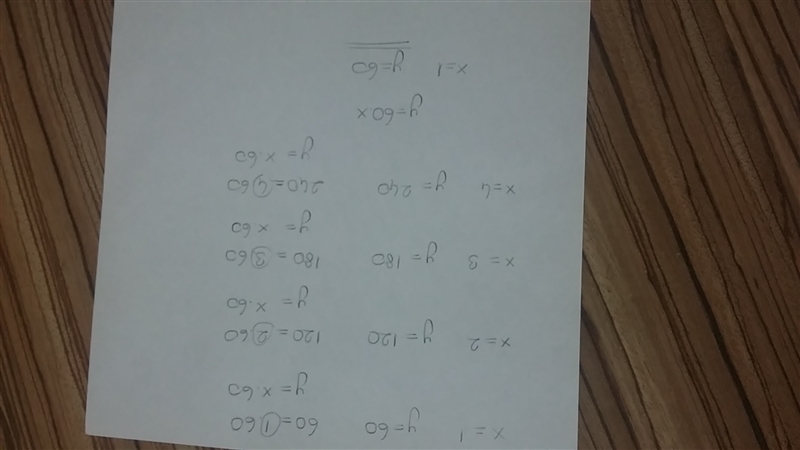 x = 1 y = 60 60 = 1.60
y = x.60
x = 2 y = 120 120 = 2.60
y = x.60
x = 3 y = 180 180 = 3.60
y = x.60
x = 4 y = 240 240 = 4.60
y = x.60
y = 60.x
x = 1 y = 60